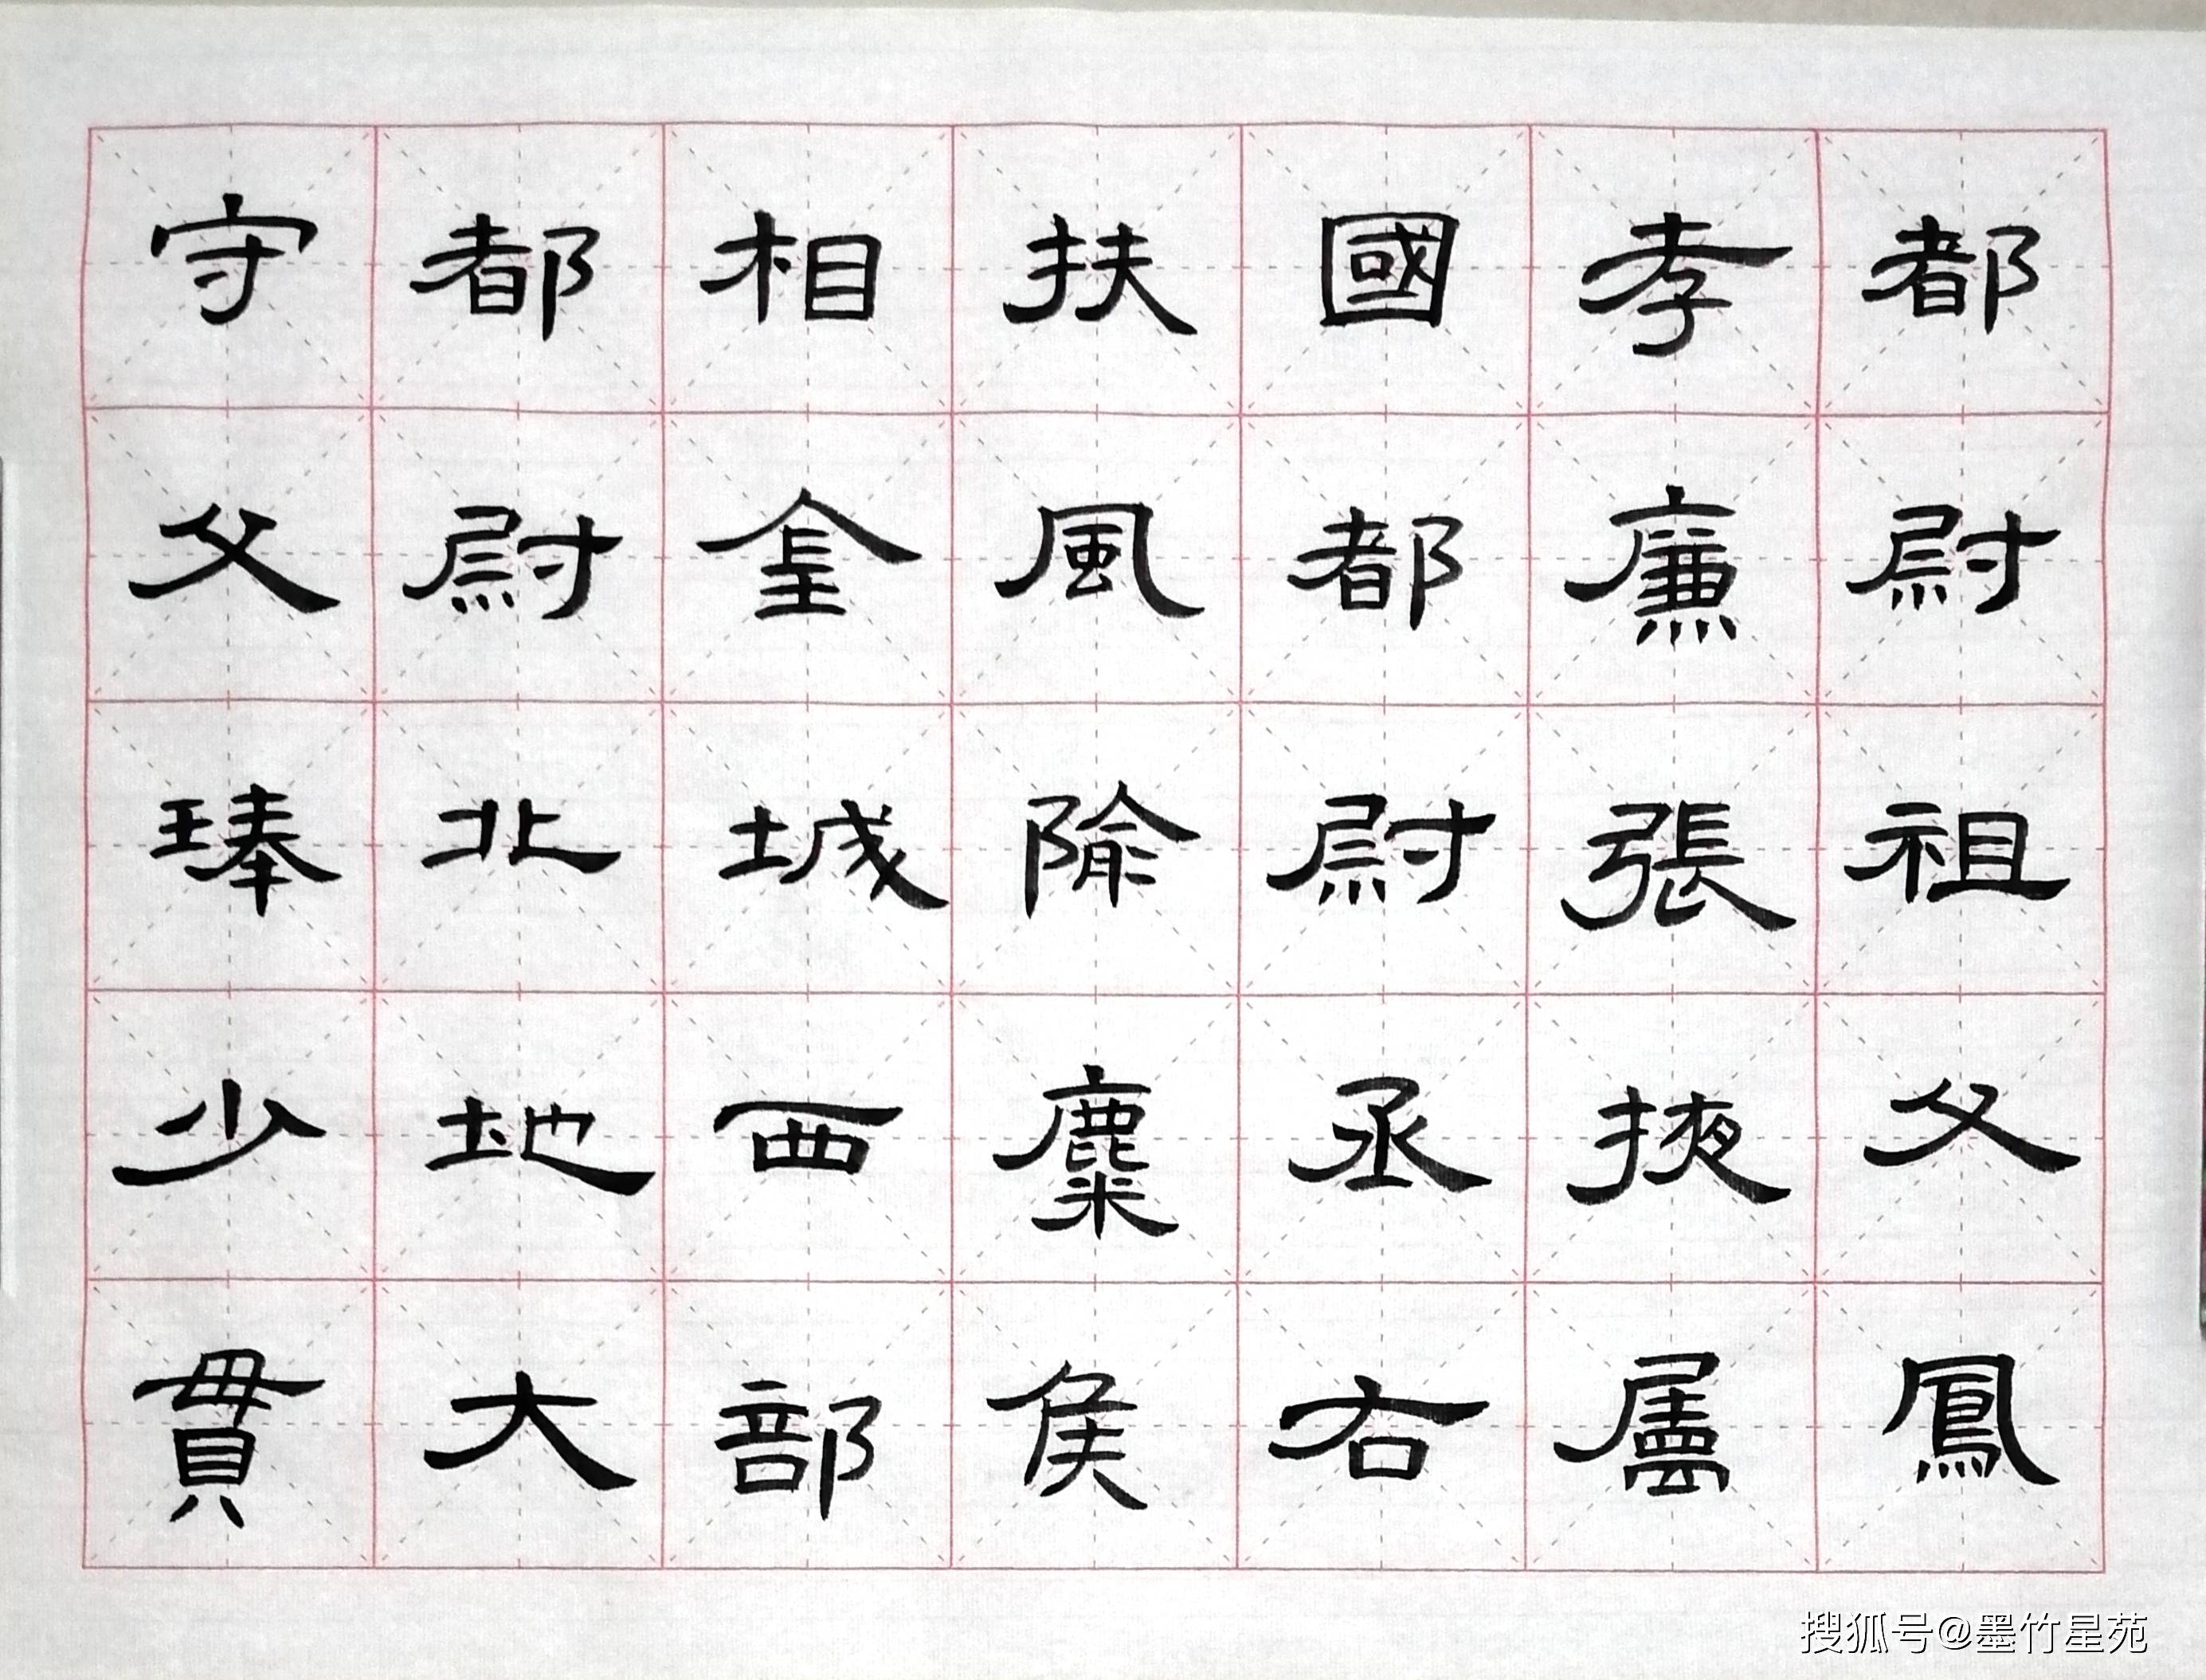 都尉祖父鳳
孝廉張掖屬
國都尉丞右
扶風隃麋侯
相金城西部
都尉北地大
守父琫少貫
搜狐号@墨竹星苑